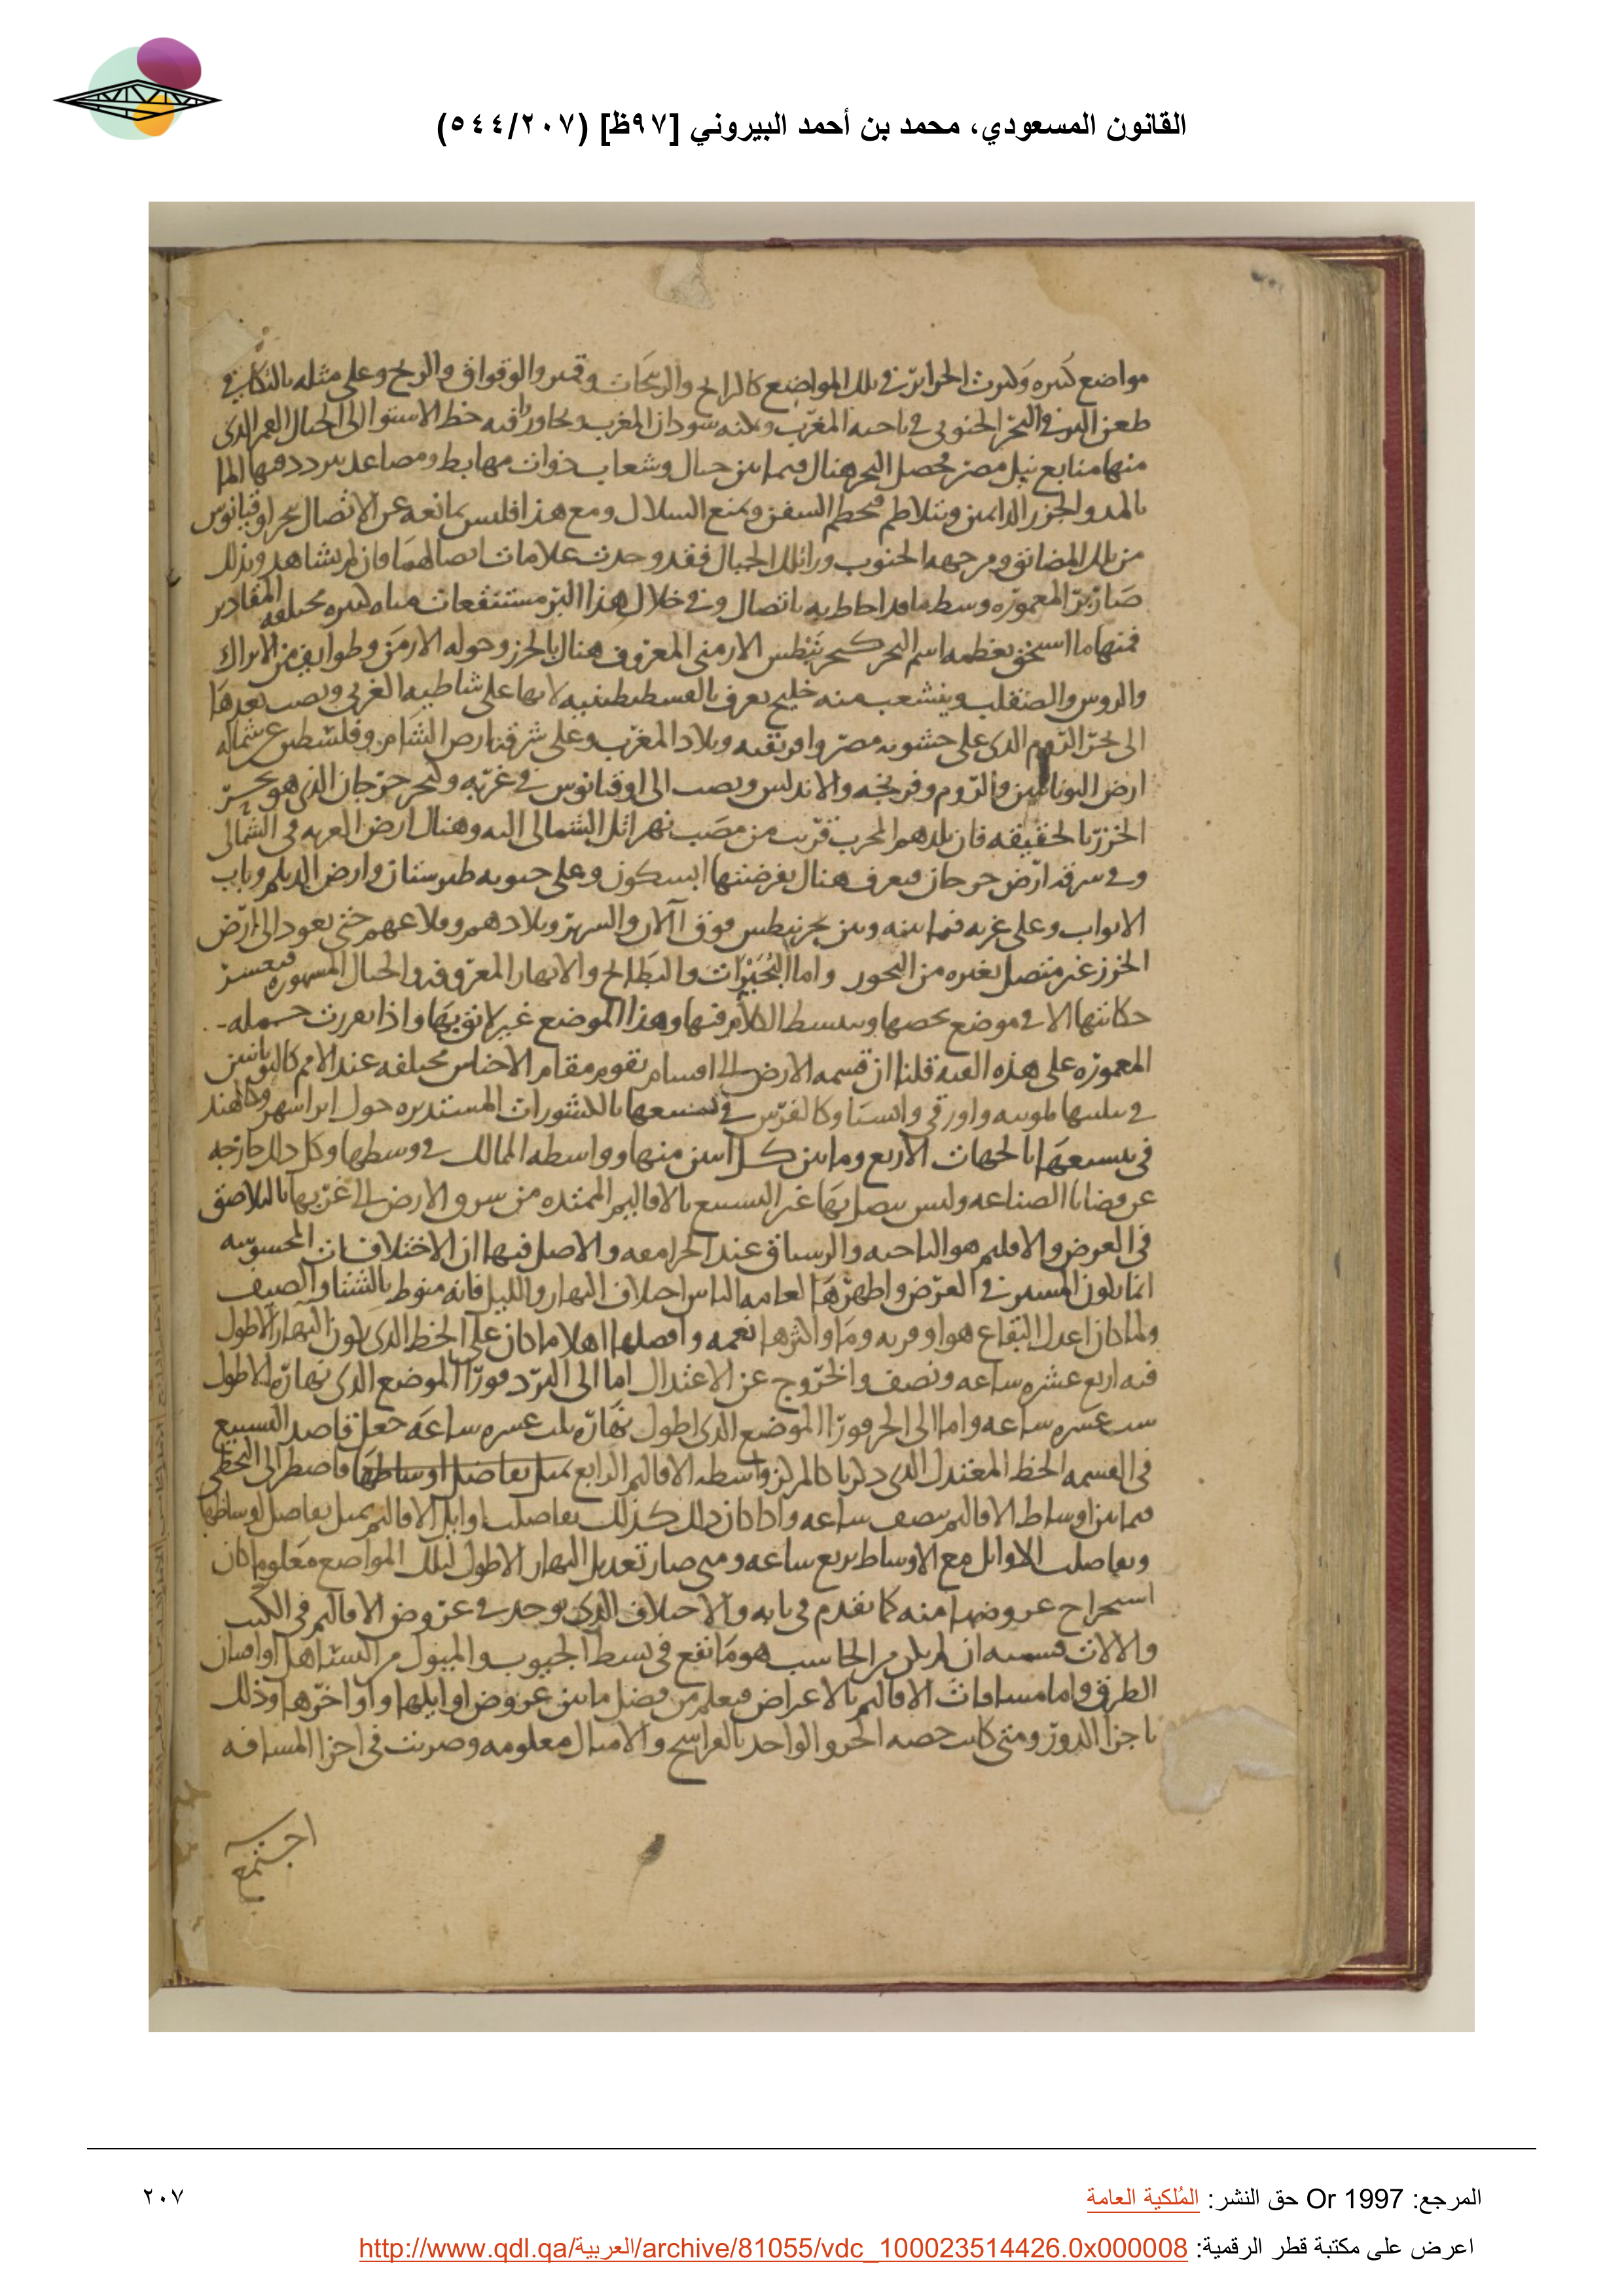 القانون المسعودي، محمد بن أحمد البيروني [٩٧ظ] (٥٤٤/٢٠٧)
مواضع كثيره وكثرت الجزاير في تلك المواضع كالرانج والريبجات وقمير والوقواق والزنج وعلى مثله بالتكافي
طعن البر في البحر الجنوبي في ناحيه المغرب وسكنه سودان المغرب وتجاوزوا فيه خط الاستوا الى جبال القمر الذي
منها منابع نيل مصر فحصل البحر هنال فيما بين جبال وشعاب ذوات مهابط ومصاعد يتردد فيها الما
بالمد والجزر الدايمين ويتلاطم فيحطم السفن ويمنع السلال ومع هذا فليس بمانعه عن الاتصال ببحر اوقيانوس
من تلك المضائق ومن جهه الجنوب ورا تلك الجبال فقد وجدت علامات اتصالهما وان لم يشاهد وبذلك
صار بر المعموره وسط ما قد احاط به باتصال وفي خلال هذا البر مستنقعات مياه كثيره مختلفه المقادير
فمنها ما استحق بعظمه اسم البحر كبحر بنطس الارمني المعروف هنال بالخزر وحوله الارمن وطوايف من الاتراك
والروس والصقلب ويتشعب منه خليج يعرف بالقسطنطينيه لانها على شاطيه الغربي ويصب بعدها
الى بحر الروم الذي على جنوبه مصر وافريقيه وبلاد المغرب وعلى شرقه ارض الشام وفلسطين وعن شماله
ارض اليونانيين والروم وفرنجه والاندلس ويصب الى اوقيانوس في غربه وكبحر جرجان الذي هو بحر
الخزر بالحقيقه فان بلدهم المخرب قرب من مصب نهر اتل الشمالي اليه وهنال ارض الغزيه في الشمالي
وفي شرقه ارض جرجان فيعرف هنال بفرضتها ابسكون وعلى جنوبه طبرستان وارض الديلم وباب
الابواب وعلى غربه فيما بينه وبين بحر بنطس فوق آلان والسرير وبلادهم وقلاعهم حتى يعود الى ارض
الخزر غير متصل بغيره من البحور واما البحيرات والبطايح والانهار المعروفه والجبال المشهوره فيعسر
حكايتها الا في موضع يخصها ويبسط الكلام فيها وهذا الموضع غير لائق بها واذا تقررت جمله
المعموره على هذه قلنا ان قسمه الارض الى اقسام تقوم مقام الاجناس مختلفه عند الامم كاليونانيين
في تثليثها بلوبيه واورفي واسيا وكالفرس في تسبيعها بالكشورات المستديره حول ايرانشهر وكالهند
في تتسيعها بالجهات الاربع وما بين كل اثنين منها وواسطه الممالك في وسطها وكل ذلك خارجه
عن قضايا الصناعه وليس يتصل بها غير التسبيع بالاقاليم الممتده من شرق الارض الى غربها بالتلاصق
في العرض والاقليم هو الناحيه والرستاق عند الجرامقه والاصل فيها ان الاختلافات المحسوسه
انما تكون للمسير في العرض واظهرها لعامه الناس اختلاف النهار والليل فانه منوط بالشتا والصيف
ولما كان اعدل البقاع هوا وتربه وما واكثرها نعمه وافضلها اهلا ما كان على الخط الذي يكون النهار الاطول
فيه اربع عشره ساعه ونصف والخروج عن الاعتدال اما الى البرد فورا الموضع الذي نهاره الاطول
ست عشره ساعه واما الى الحر فورا الموضع الذي اطول نهاره ثلث عشره ساعه جعل قاصد التسبيع
في القسمه الخط المعتدل الذي ذكرنا كالمركز واسطه الاقاليم الرابع بمثل تفاضل اوساطها فاضطر الى التخطي
فيما بين اوساط الاقاليم بنصف ساعه واذا كان ذلك كذلك تفاضلت اوايل الاقاليم بمثل تفاضل اوساطها
وتفاضلت الاوايل مع الاوساط بربع ساعه ومتى صار تعديل النهار الاطول لتلك المواضع معلوما كان
استخراج عروضها منه كما تقدم في بابه والاختلاف الذي يوجد في عروض الاقاليم في الكتب
والالات فسببه ان لم يكن من الحاسب هو ما تقع في بسط الجيوب والميول من التساهل او اميان
الطرق واما مسافات الاقاليم بالاعراض فيعلم من فضل ما بين عروض اوايلها واواخرها وذلك
باجزا الدور ومتى كانت حصه الجزو الواحد بالفراسخ والاميال معلومه وضربت في اجزا المسافه
اجتمع
المرجع: Or 1997 حق النشر: المُلكية العامة
٢٠٧
اعرض على مكتبة قطر الرقمية: http://www.qdl.qa/العربية/archive/81055/vdc_100023514426.0x000008